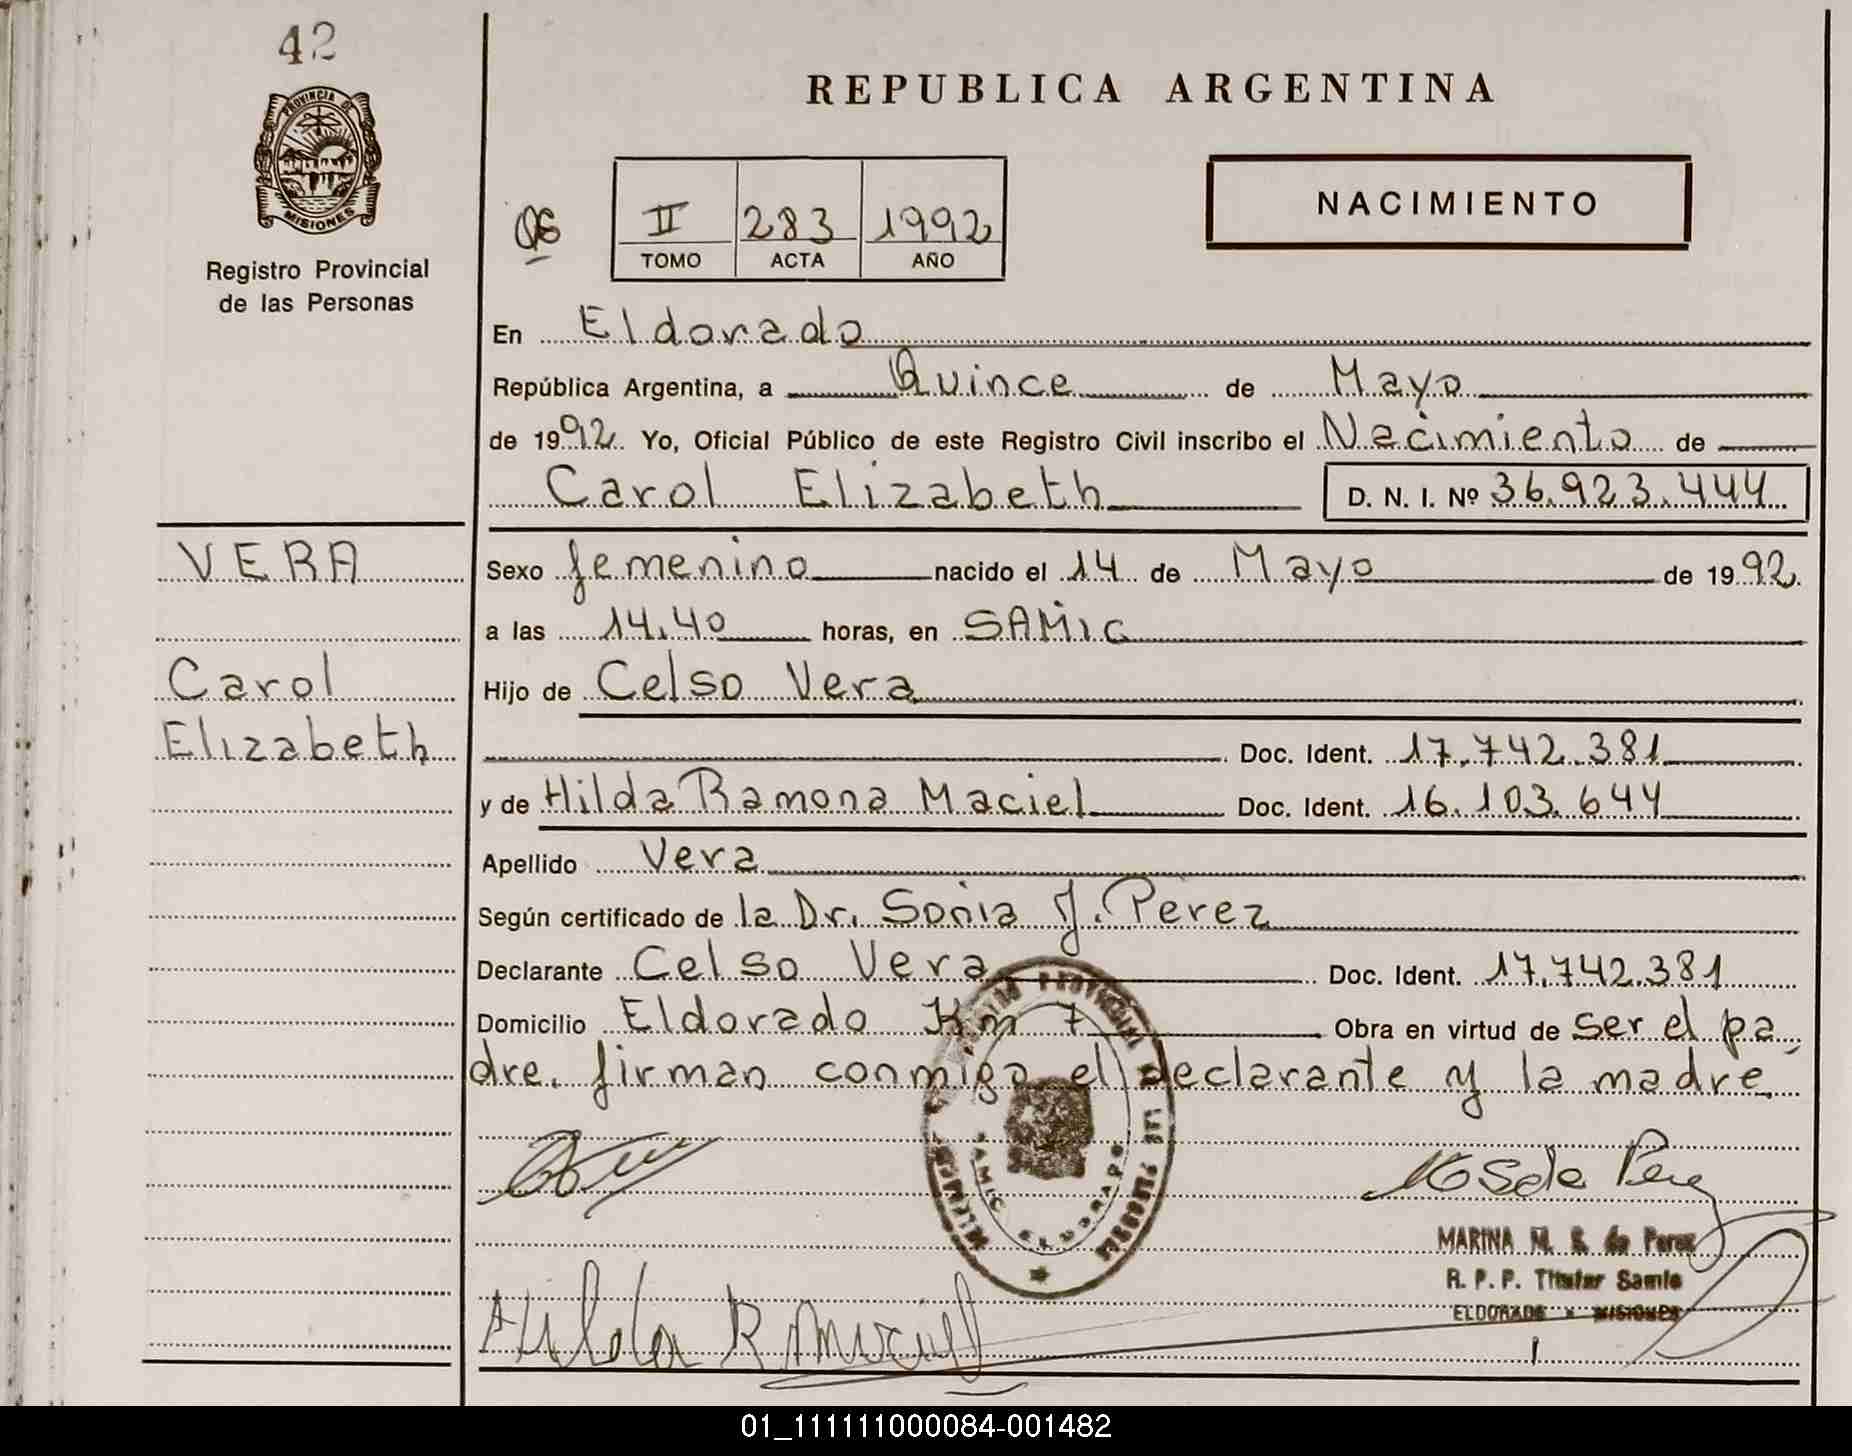 42
PROVINCIA DE
MISIONES
Registro Provincial
de las Personas
REPUBLICA ARGENTINA
NACIMIENTO
06 II 283 1992
TOMO ACTA AÑO
En Eldorado
República Argentina, a Quince de Mayo
de 1992 Yo, Oficial Público de este Registro Civil inscribo el Nacimiento de
Carol Elizabeth D. N. I. Nº 36.923.444
VERA
Carol
Elizabeth
Sexo femenino nacido el 14 de Mayo de 1992.
a las 14.40 horas, en SAMIC
Hijo de Celso Vera
Doc. Ident. 17.742.381
y de Hilda Ramona Maciel Doc. Ident. 16.103.644
Apellido Vera
Según certificado de la Dr. Sonia J. Perez
Declarante Celso Vera Doc. Ident. 17.742.381
Domicilio Eldorado Km 7 Obra en virtud de ser el pa
dre. firman conmigo el declarante y la madre
SAMIC ELDORADO
MARINA M. S. de Perez
R. P. P. Titular Samic
ELDORADO - MISIONES
Hilda R Maciel
01_111111000084-001482